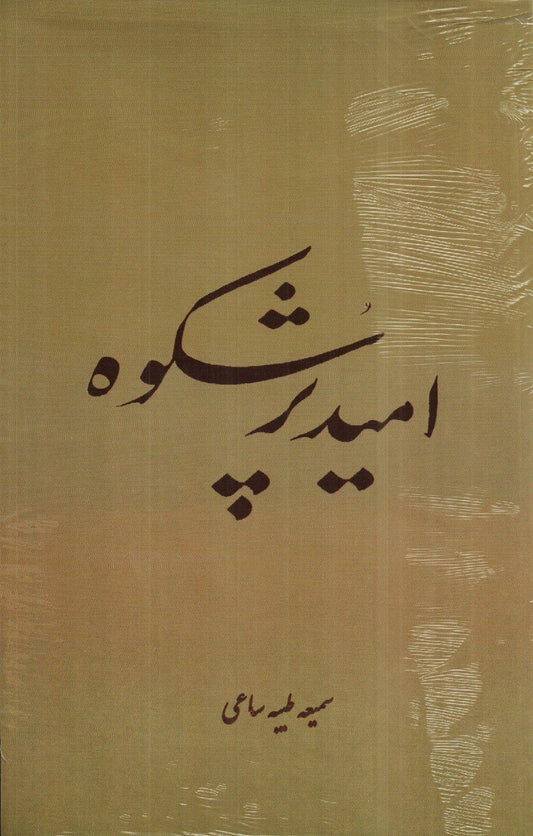 امید پُر شکوه
سمیعه طیبه ساعی